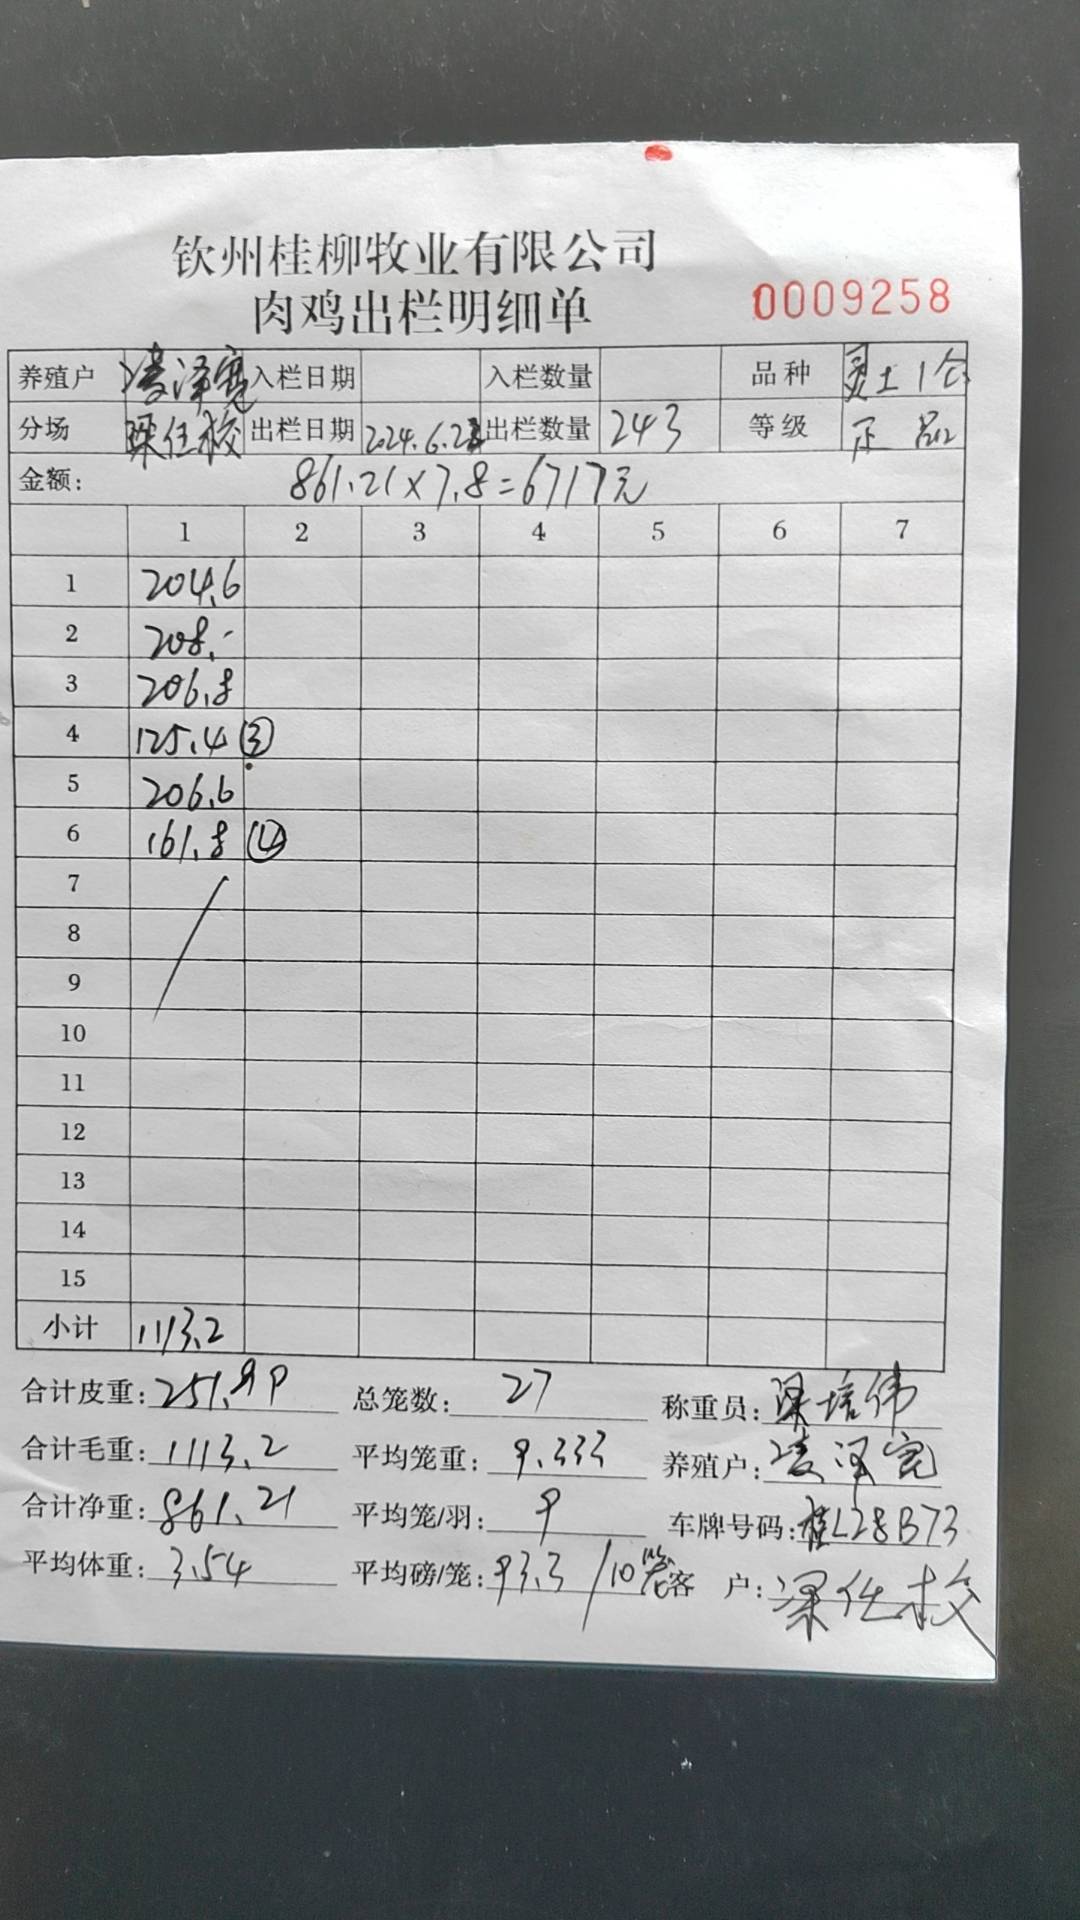 钦州桂柳牧业有限公司
肉鸡出栏明细单
0009258
养殖户 凌泽宽 入栏日期 入栏数量 品种 灵土1仓
分场 梁仕校 出栏日期 2024.6.23 出栏数量 243 等级 正品
金额: 861.21×7.8=6717元
1 2 3 4 5 6 7
1 204.6
2 208.-
3 206.8
4 125.4 ③
5 206.6
6 161.8 ④
7
8
9
10
11
12
13
14
15
小计 1113.2
合计皮重: 251.99 总笼数: 27 称重员: 梁培伟
合计毛重: 1113.2 平均笼重: 9.333 养殖户: 凌泽宽
合计净重: 861.21 平均笼/羽: 9 车牌号码: 桂L28B73
平均体重: 3.54 平均磅/笼: 93.3/10笼 客 户: 梁仕校